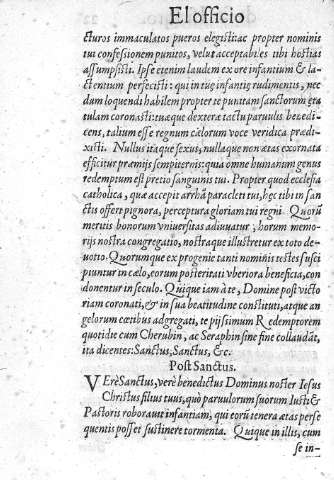 El officio
cturos immaculatos pueros elegisti: ac propter nominis
tui confessionem punitos, velut acceptabiles tibi hostias
assumpsisti. Ipse etenim laudem ex ore infantium & la-
ctentium perfecisti: qui in tuę infantię rudimentis, nec
dum loquendi habilem propter te punitam sanctorum etá
tulam coronasti: tuæque dexteræ tactu paruulis benedi-
cens, talium esse regnum cælorum voce veridica prædi-
xisti. Nullus itaque sexus, nullaque non ætas exornata
efficitur præmijs sempiternis: quia omne humanum genus
redemptum est pretio sanguinis tui. Propter quod ecclesia
catholica, qua accepit arrhã paracleti tui, hęc tibi in san
ctis offert pignora, perceptura gloriam tui regni. Quorũ
meritis bonorum vniuersitas adiuuatur, horum memo-
rijs nostra congregatio, nostraque illustretur ex toto de-
uotto. Quorumque ex progenie tanti nominis testes susci
piuntur in cælo, eorum posteritati vberiora beneficia, con
donentur in seculo. Quique iam à te, Domine post victo
riam coronati, & in sua beatitudine constituti, atque an
gelorum cœtibus adgregati, te pijssimum Redemptorem
quotidie cum Cherubin, ac Seraphin sine fine collaudãt,
ita dicentes: Sanctus, Sanctus, &c.
Post Sanctus.
VErè Sanctus, verè benedictus Dominus noster Iesus
Christus filius tuus, quò paruulorum suorum Iusti &
Pastoris roborauit infantiam, qui eorũ tenera ætas perse
quentis posset sustinere tormenta. Quique in illis, cum
se in-